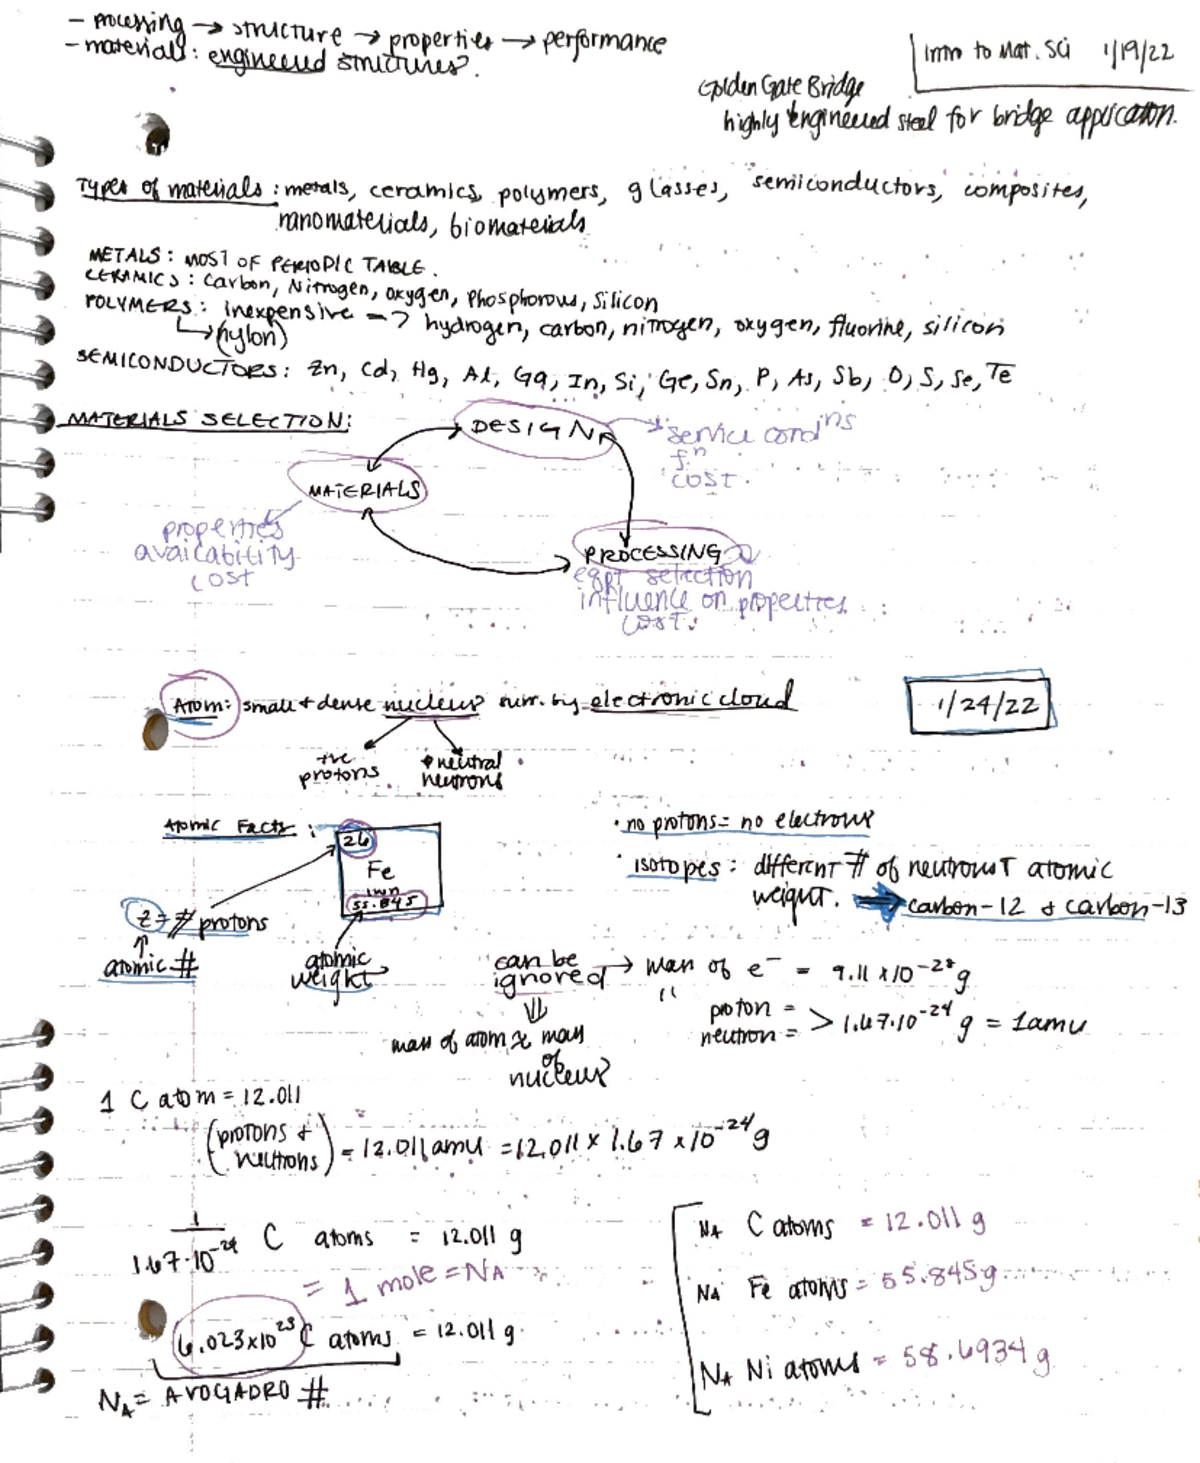 - processing → structure → properties → performance
- materials: engineered structures.
Intro to Mat. Sci 1/19/22
Golden Gate Bridge
highly engineered steel for bridge application.
Types of materials: metals, ceramics, polymers, glasses, semiconductors, composites,
nanomaterials, biomaterials
METALS: MOST OF PERIODIC TABLE.
CERAMICS: Carbon, Nitrogen, oxygen, Phosphorous, Silicon
POLYMERS: inexpensive → hydrogen, carbon, nitrogen, oxygen, fluorine, silicon
↳ (nylon)
SEMICONDUCTORS: Zn, Cd, Hg, Al, Ga, In, Si, Ge, Sn, P, As, Sb, O, S, Se, Te
MATERIALS SELECTION:
DESIGN
service condⁿs
fⁿ
cost.
MATERIALS
properties
availability
cost
PROCESSING
eqpt selection
influence on properties
cost.
Atom: small + dense nucleus surr. by electronic cloud
1/24/22
+ve protons
neutral neutrons
Atomic Facts:
26
Fe
iron
55.845
z = # protons
↑
atomic #
atomic weight
• no protons = no electrons
• isotopes: different # of neutrons T atomic
weight. → carbon-12 & carbon-13
can be ignored → mass of e⁻ = 9.11 x10⁻²⁸ g
" proton =
neutron = > 1.67·10⁻²⁴ g = 1amu
⇓
mass of atom ≈ mass of nucleus
1 C atom = 12.011
(protons + neutrons) = 12.011 amu = 12.011 × 1.67 × 10⁻²⁴ g
1/1.67·10⁻²⁴ C atoms = 12.011 g
= 1 mole = NA
6.023x10²³ C atoms = 12.011 g
NA = AVOGADRO #
NA C atoms = 12.011 g
NA Fe atoms = 55.845g
NA Ni atoms = 58.6934 g